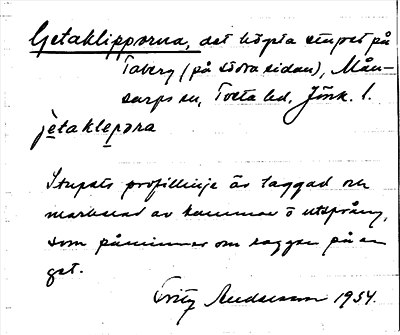 Getaklipporna, det högsta stupet på
Taberg (på södra sidan), Mån-
sarps sn, Tveta hd, Jönk. l.
jetaklepora
Stupets profillinje är taggad och
markerad av kammar o utsprång,
som påminner om raggen på en
get.
Fritz Andersson 1954.